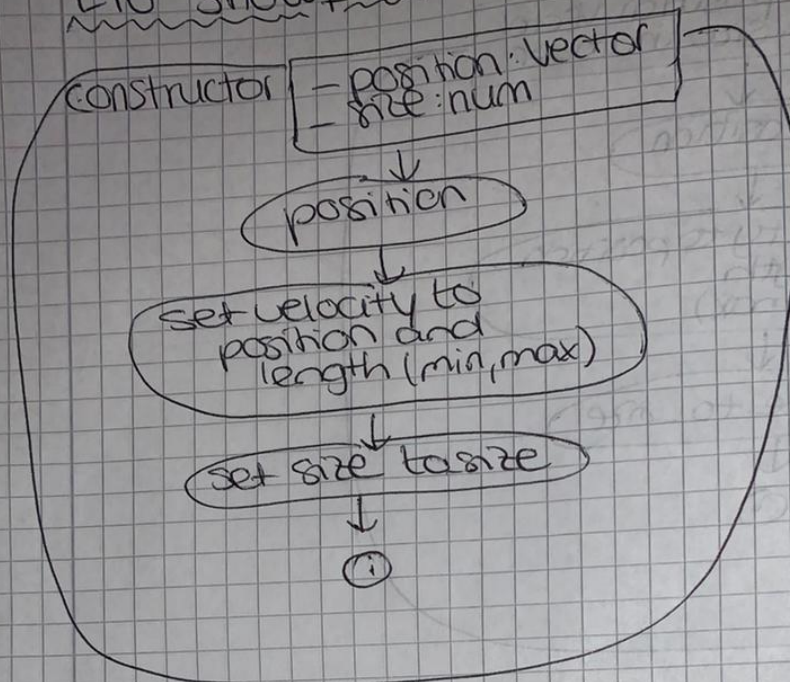 constructor
- position: vector
- size: num
position
set velocity to
position and
length (min, max)
set size to size
i